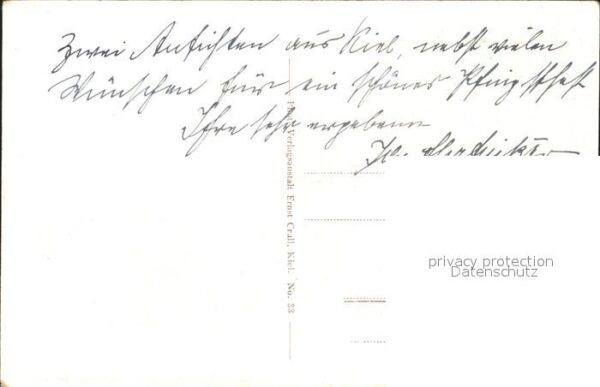 Zwei Ansichten aus Kiel, nebst vielen
Wünschen für ein schönes Pfingstfest
Ihre sehr ergebene
Verlagsanstalt Ernst Crall, Kiel. No. 33
privacy protection
Datenschutz